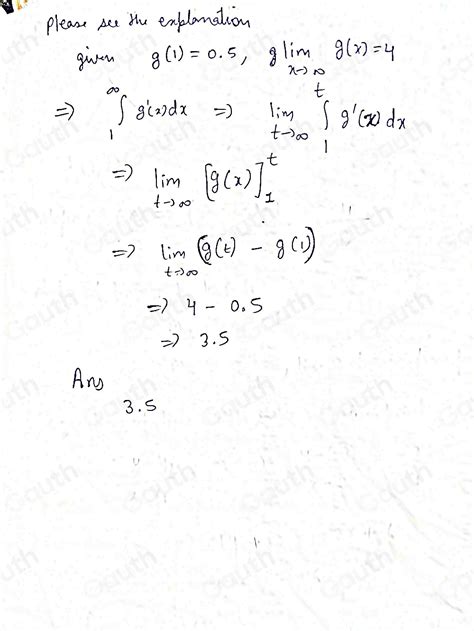 please see the explanation
given g(1) = 0.5, g lim x→∞ g(x) = 4
⇒ ∫₁^∞ g'(x) dx ⇒ lim t→∞ ∫₁^t g'(x) dx
⇒ lim t→∞ [g(x)]₁^t
⇒ lim t→∞ (g(t) - g(1))
⇒ 4 - 0.5
⇒ 3.5
Ans
3.5